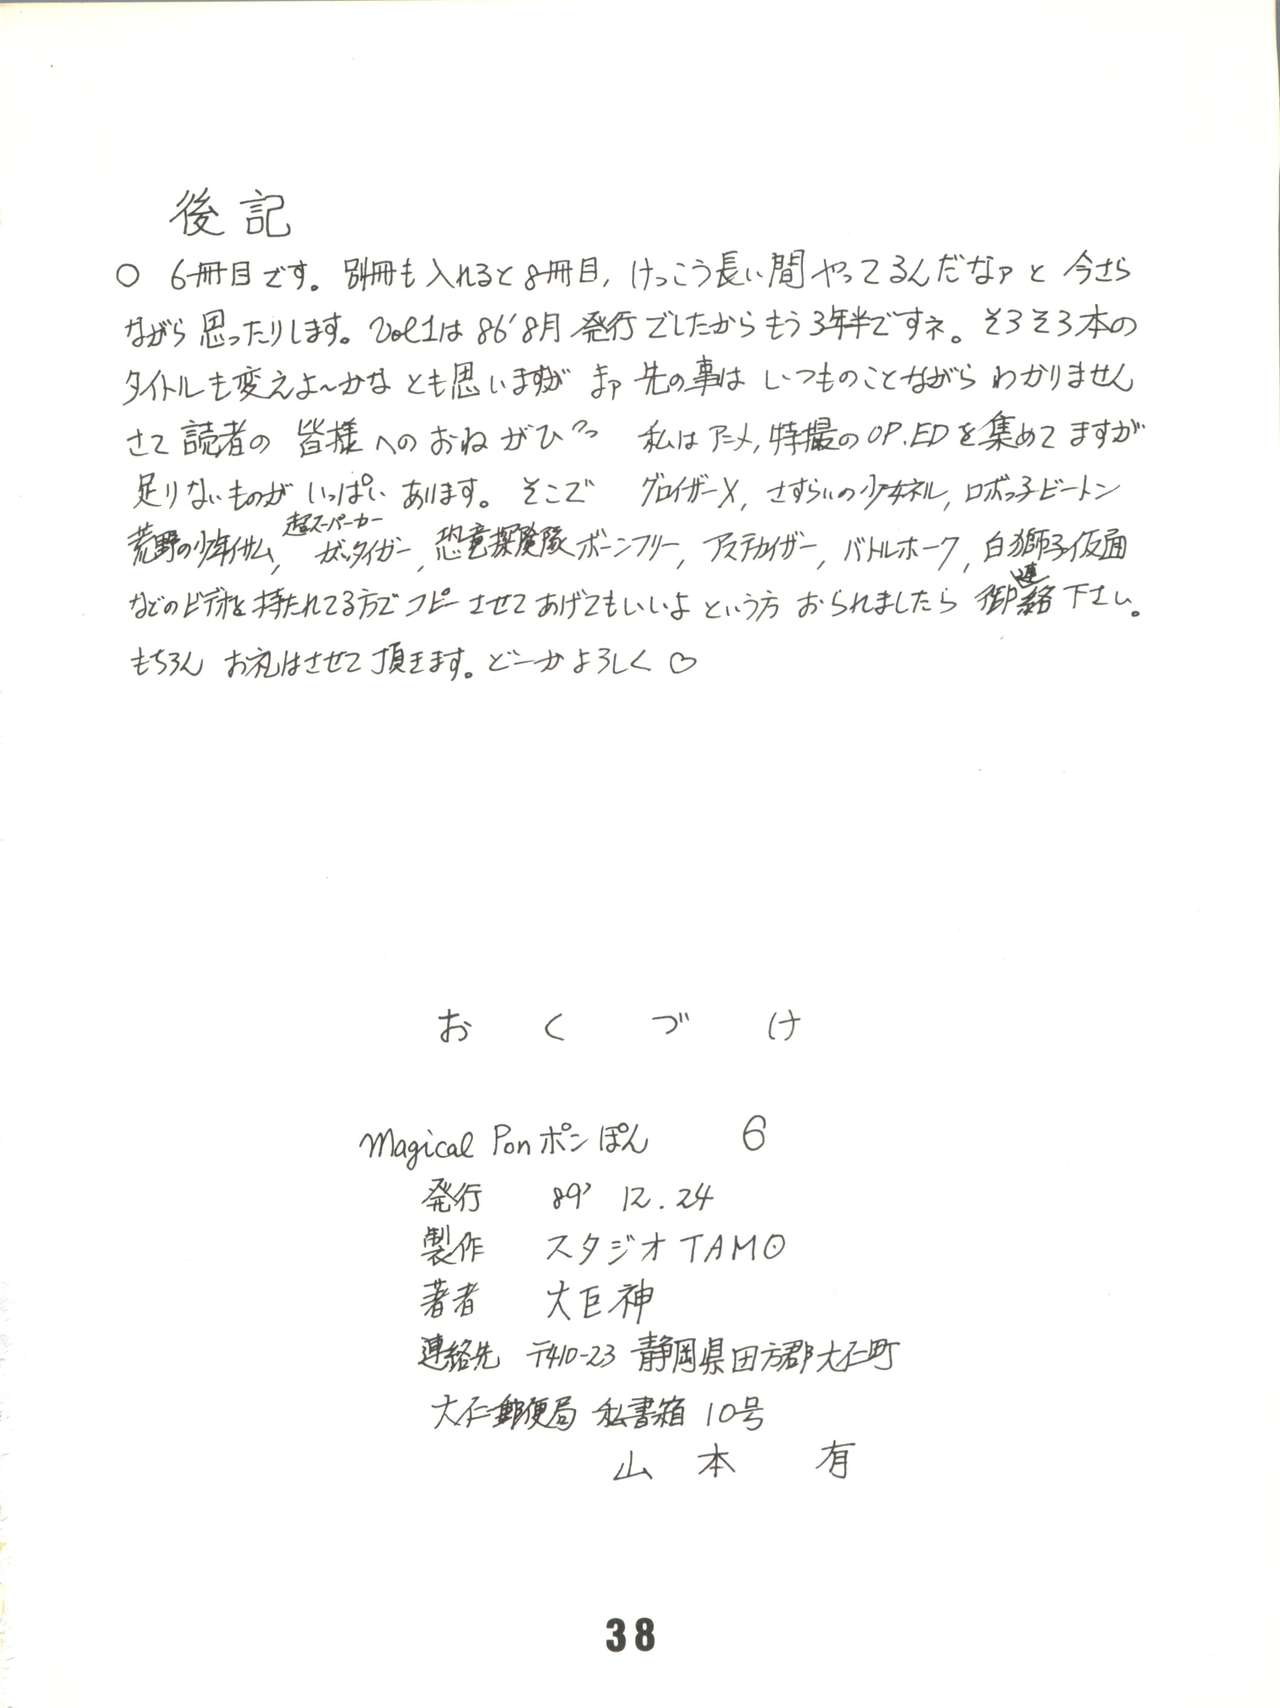 後記
○ 6冊目です。別冊も入れると8冊目，けっこう長い間やってるんだなァと今さら
ながら思ったりします。Vol1は86'8月発行でしたからもう3年半ですネ。そろそろ本の
タイトルも変えよ〜かなとも思いますが まァ先の事はいつものことながらわかりません
さて読者の皆様へのおねがひ 私はアニメ，特撮のOP.EDを集めてますが
足りないものがいっぱいあります。そこで グロイザーX，さすらいの少女ネル，ロボっ子ビートン
荒野の少年イサム，超スーパーカーガッタイガー，恐竜探険隊ボーンフリー，アステカイザー，バトルホーク，白獅子仮面
などのビデオを持たれてる方でコピーさせてあげてもいいよという方おられましたら御連絡下さい。
もちろんお礼はさせて頂きます。どーかよろしく♡
おくづけ
Magical Ponポンぽん 6
発行 89' 12.24
製作 スタジオTAMO
著者 大巨神
連絡先 〒410-23 静岡県田方郡大仁町
大仁郵便局 私書箱10号
山本 有
38